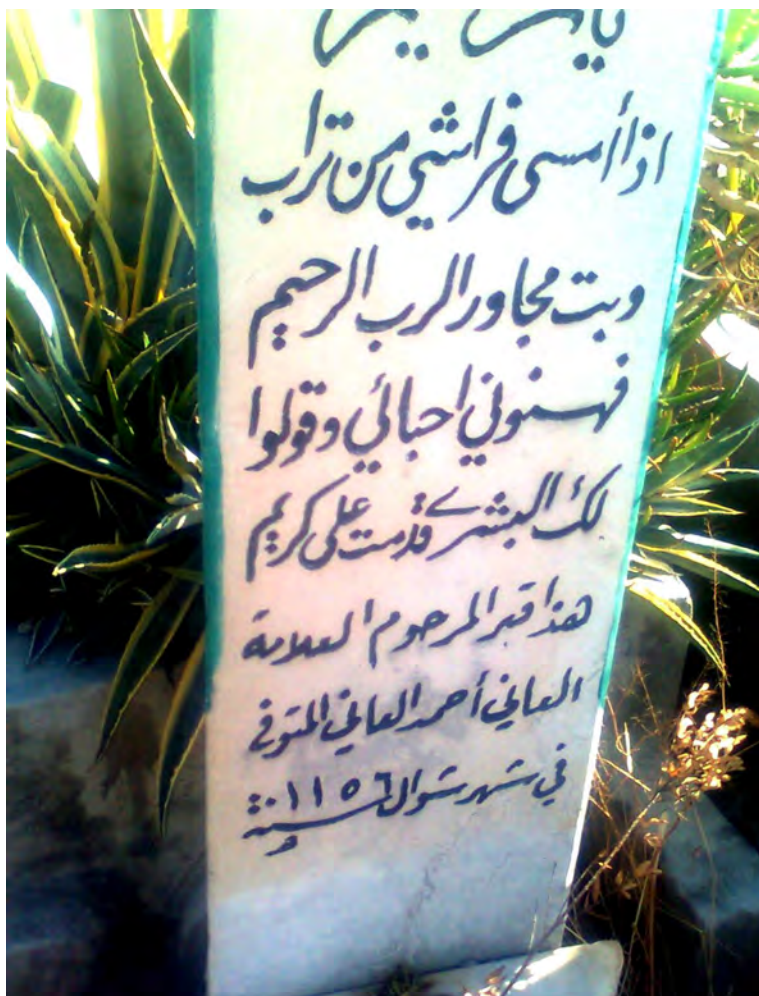 اذا أمسى فراشي من تراب
وبت مجاور الرب الرحيم
فهنوني احبائي وقولوا
لك البشرى قدمت على كريم
هذا قبر المرحوم العلامة
العاني أحمد العاني المتوفي
في شهر شوال سنة ١١٥٦